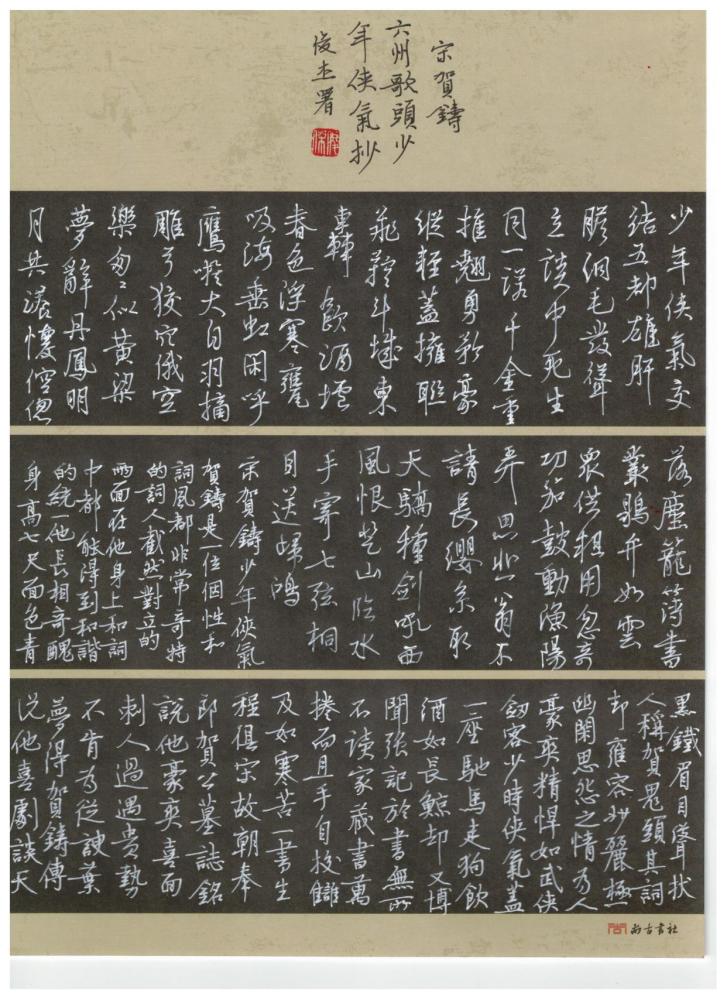 宋賀鑄
六州歌頭少
年俠氣抄
俊杰署
少年俠氣交
結五都雄肝
膽洞毛髮聳
立談中死生
同一諾千金重
推翹勇矜豪
縱輕蓋擁聯
飛鞚斗城東
轟轟飲酒壚
春色浮寒甕
吸海垂虹閑呼
鷹嗾犬白羽摘
雕弓狡穴俄空
樂匆匆似黃粱
夢辭丹鳳明
月共漾懷倥傯
落塵籠簿書
叢鶡弁如雲
眾供粗用忽奇
功笳鼓動漁陽
弄思悲翁不
請長纓系取
天驕種劍吼西
風恨登山臨水
手寄七弦桐
目送歸鴻
宋賀鑄少年俠氣
賀鑄是一位個性和
詞風都非常奇特
的詞人截然對立的
兩面在他身上和詞
中都能得到和諧
的統一他長相奇醜
身高七尺面色青
黑鐵眉目聳拔
人稱賀鬼頭其詞
却雍容妙麗極
幽閑思怨之情為人
豪爽精悍如武俠
劍客少時俠氣蓋
一座馳馬走狗飲
酒如長鯨却又博
聞強記於書無所
不讀家藏書萬
捲而且手自校讎
及如寒苦一書生
程俱宋故朝奉
郎賀公墓誌銘
說他豪爽喜面
刺人過遇貴勢
不肯為從諛葉
夢得賀鑄傳
說他喜劇談天
尚古書社